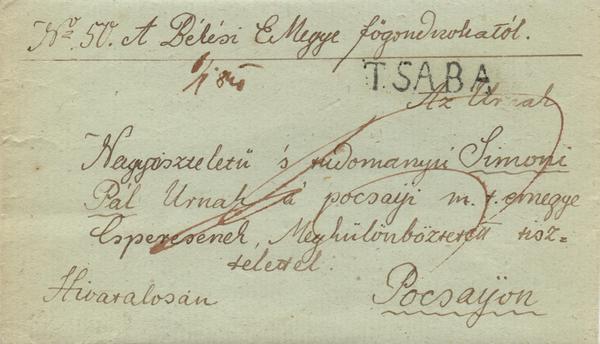 No. 50. A Békési EMegye fögondnokától.
TSABA
Az Urnak
Nagytiszteletü 's tudományú Simoni
Pál Urnak a' pocsaji m. t. emegye
Esperesének, Megkülönböztetett tisz=
telettel.
Hivatalosán
Pocsajon